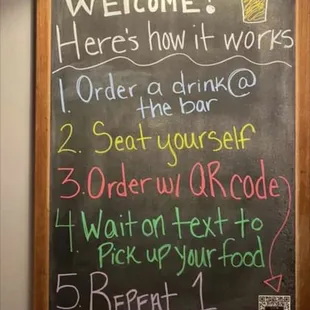 WELCOME!
Here's how it works
1. Order a drink @
the bar
2. Seat yourself
3. Order w/ QR code
4 Wait on text to
Pick up your food
5. REPEAT 1